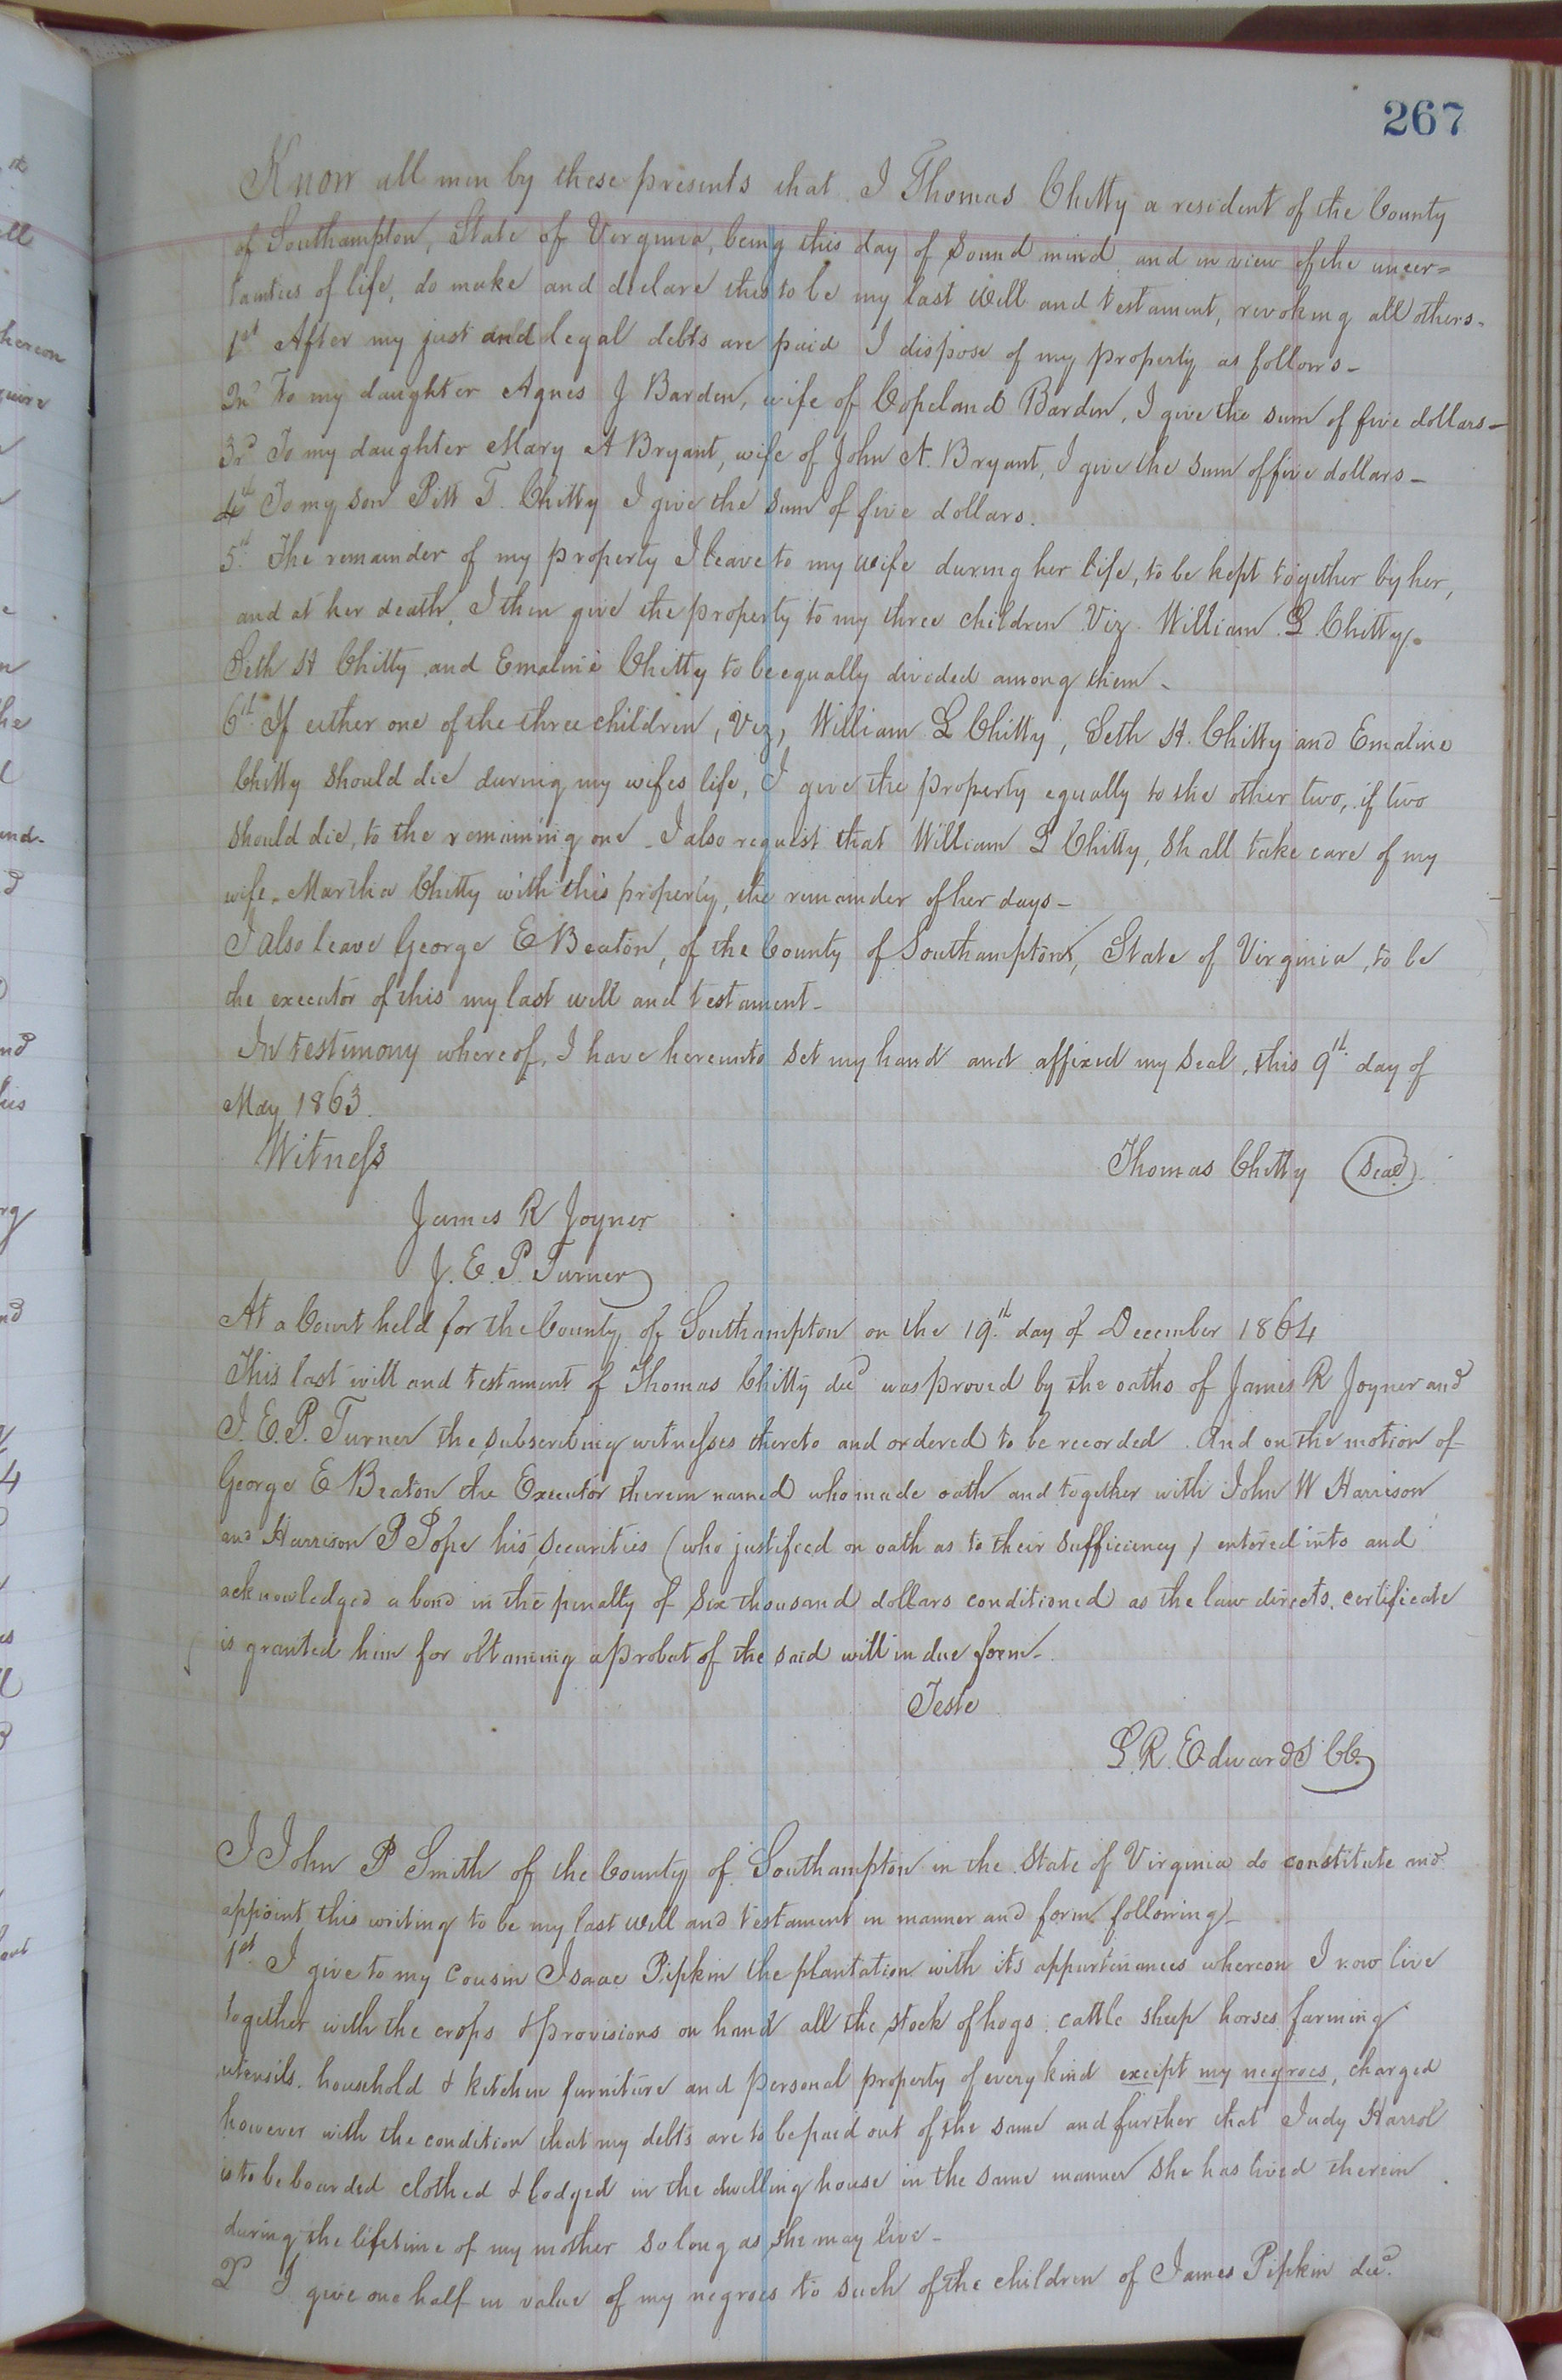 267
Know all men by these presents that I Thomas Chitty a resident of the County
of Southampton, State of Virginia, being this day of sound mind and in view of the uncer=
tainties of life, do make and declare this to be my last will and testament, revoking all others-
1st After my just and legal debts are paid I dispose of my property as follows-
2nd To my daughter Agnes J Barden, wife of Copeland Barden, I give the sum of five dollars-
3rd To my daughter Mary A Bryant, wife of John A. Bryant, I give the sum of five dollars-
4th To my son Pitt T. Chitty I give the sum of five dollars.
5th The remainder of my property I leave to my wife during her life, to be kept together by her,
and at her death, I then give the property to my three children Viz. William L Chitty.
Seth H Chitty and Emaline Chitty to be equally divided among them-
6th If either one of the three children, Viz, William L Chitty, Seth H. Chitty and Emaline
Chitty should die during my wifes life, I give the property equally to the other two, if two
should die, to the remaining one. I also request that William L Chitty, shall take care of my
wife. Martha Chitty with this property, the remainder of her days-
I also leave George E Beaton, of the County of Southampton, State of Virginia, to be
the executor of this my last will and testament-
In testimony whereof, I have hereunto set my hand and affixed my seal, this 9th day of
May 1863.
Witness Thomas Chitty (Seal)
James R Joyner
J. E. P. Turner
At a Court held for the County of Southampton on the 19th day of December 1864
This last will and testament of Thomas Chitty decd was proved by the oaths of James R Joyner and
J. E. P. Turner the subscribing witnesses thereto and ordered to be recorded. And on the motion of
George E Beaton the Executor therein named who made oath and together with John W Harrison
and Harrison P Pope his securities (who justified on oath as to their sufficiency) entered into and
acknowledged a bond in the penalty of six thousand dollars conditioned as the law directs. certificate
is granted him for obtaining a probat of the said will in due form-
Teste
L. R. Edwards CC.
I John P Smith of the County of Southampton in the State of Virginia do constitute and
appoint this writing to be my last will and testament in manner and form following-
1st I give to my cousin Isaac Pipkin the plantation with its appurtinances whereon I now live
together with the crops & provisions on hand all the stock of hogs cattle sheep horses farming
utensils. household & kitchen furniture and personal property of every kind except my negroes, charged
however with the condition that my debts are to be paid out of the same and further that Judy Harrol
is to be boarded clothed & lodged in the dwelling house in the same manner she has lived therein
during the lifetime of my mother so long as she may live-
2d I give one half in value of my negroes to such of the children of James Pipkin decd.